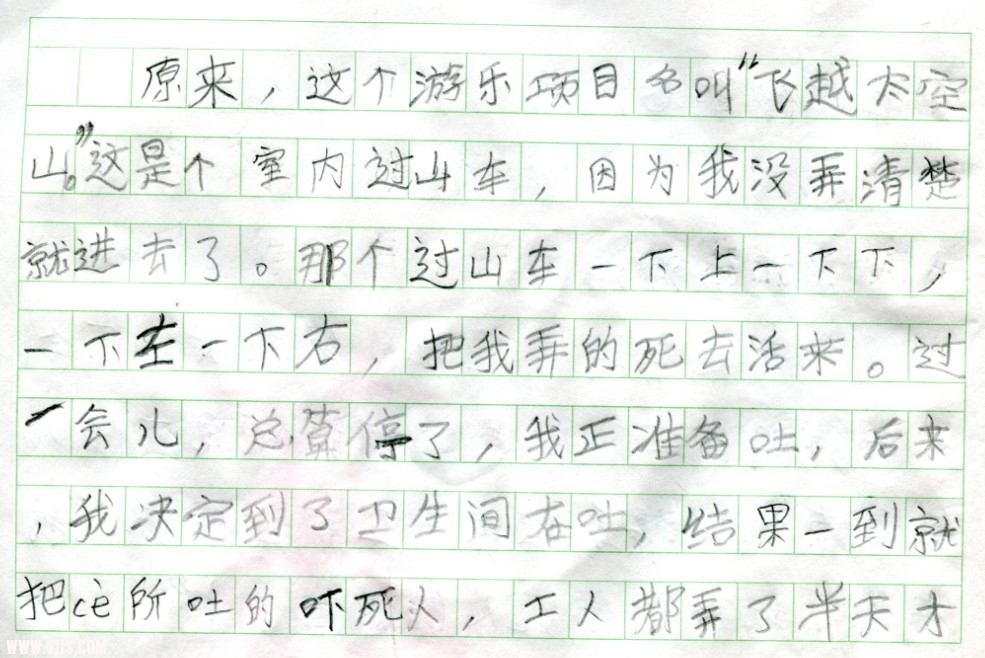 原来，这个游乐项目名叫“飞越太空
山。”这是个室内过山车，因为我没弄清楚
就进去了。那个过山车一下上一下下，
一下左一下右，把我弄的死去活来。过
一会儿，总算停了，我正准备吐，后来
，我决定到了卫生间在吐，结果一到就
把cè所吐的吓死人，工人都弄了半天才